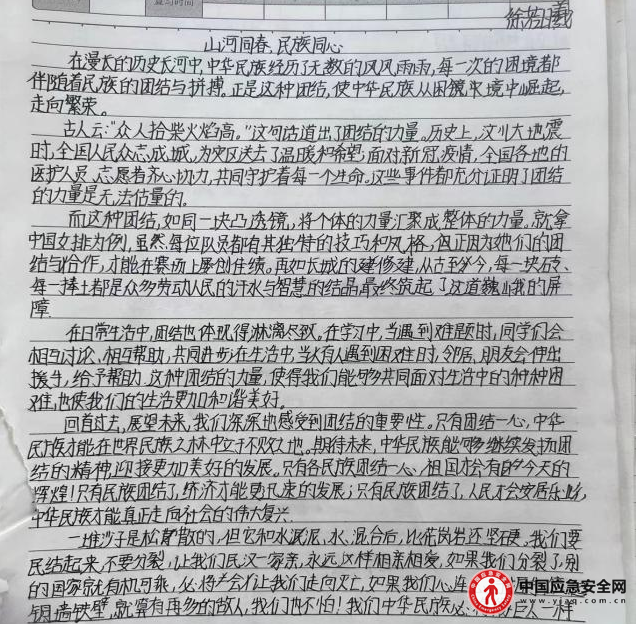 复习时间
徐艺曦
山河同春,民族同心
在漫长的历史长河中,中华民族经历了无数的风风雨雨,每一次的困境都
伴随着民族的团结与拼搏。正是这种团结,使中华民族从困境中崛起,
走向繁荣。
古人云:"众人拾柴火焰高。"这句话道出了团结的力量。历史上,汶川大地震
时,全国人民众志成城,为灾区送去了温暖和希望;面对新冠疫情,全国各地的
医护人员、志愿者齐心协力,共同守护着每一个生命。这些事件都充分证明了团结
的力量是无法估量的。
而这种团结,如同一块凸透镜,将个体的力量汇聚成整体的力量。就拿
中国女排为例,虽然每位队员都有其独特的技巧和风格,但正因为她们的团
结与合作,才能在赛场上屡创佳绩。再如长城的修建,从古至今,每一块砖、
每一捧土都是众多劳动人民的汗水与智慧的结晶,最终筑起了这道巍峨的屏
障。
在日常生活中,团结也体现得淋漓尽致。在学习中,当遇到难题时,同学们会
相互讨论、相互帮助,共同进步;在生活中,当有人遇到困难时,邻居、朋友会伸出
援手,给予帮助。这种团结的力量,使得我们能够共同面对生活中的种种困
难,也使我们的生活更加和谐美好。
回首过去,展望未来,我们深深地感受到团结的重要性。只有团结一心,中华
民族才能在世界民族之林中立于不败之地。期待未来,中华民族能够继续发扬团
结的精神,迎接更加美好的发展。只有各民族团结一心,祖国才会有的今天的
辉煌!只有民族团结了,经济才能更迅速的发展;只有民族团结了,人民才会安居乐业,
中华民族才能真正走向社会的伟大复兴。
一堆沙子是松散的,但它和水泥、水、混合后,比花岗岩还坚硬。我们要
民结起来,不要分裂,让我们民汉一家亲,永远这样相亲相爱,如果我们分裂了,别
的国家就有机可乘,必将会让我们走向灭亡,如果我们心连
铜墙铁壁,就算有再多的敌人,我们也不怕!我们中华民族必 一样
中国应急安全网
www.yjaq.com.cn